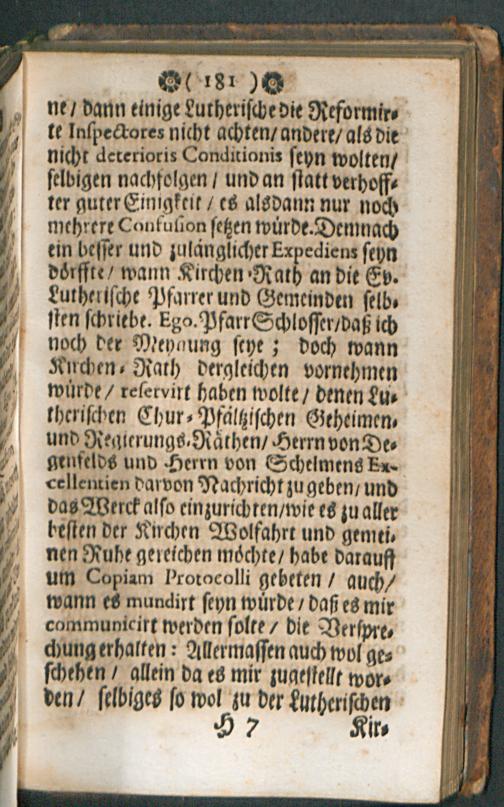 ( 181 )
ne / dann einige Lutherische die Reformir-
te Inspectores nicht achten / andere / als die
nicht deterioris Conditionis seyn wolten /
selbigen nachfolgen / und an statt verhoff-
ter guter Einigkeit / es alsdann nur noch
mehrere Confusion setzen würde. Demnach
ein besser und zulänglicher Expediens seyn
dörffte / wann Kirchen-Rath an die Ev.
Lutherische Pfarrer und Gemeinden selb-
sten schriebe. Ego. Pfarr Schlosser / daß ich
noch der Meynung seye ; doch wann
Kirchen-Rath dergleichen vornehmen
würde / reservirt haben wolte / denen Lu-
therischen Chur-Pfältzischen Geheimen-
und Regierungs-Räthen / Herrn von De-
genfelds und Herrn von Schelmens Ex-
cellentien darvon Nachricht zu geben / und
das Werck also einzurichten / wie es zu aller
besten der Kirchen Wolfahrt und gemei-
nen Ruhe gereichen möchte / habe darauff
um Copiam Protocolli gebeten / auch /
wann es mundirt seyn würde / daß es mir
communicirt werden solte / die Verspre-
chung erhalten : Allermassen auch wol ge-
schehen / allein da es mir zugestellt wor-
den / selbiges so wol zu der Lutherischen
H 7 Kir-